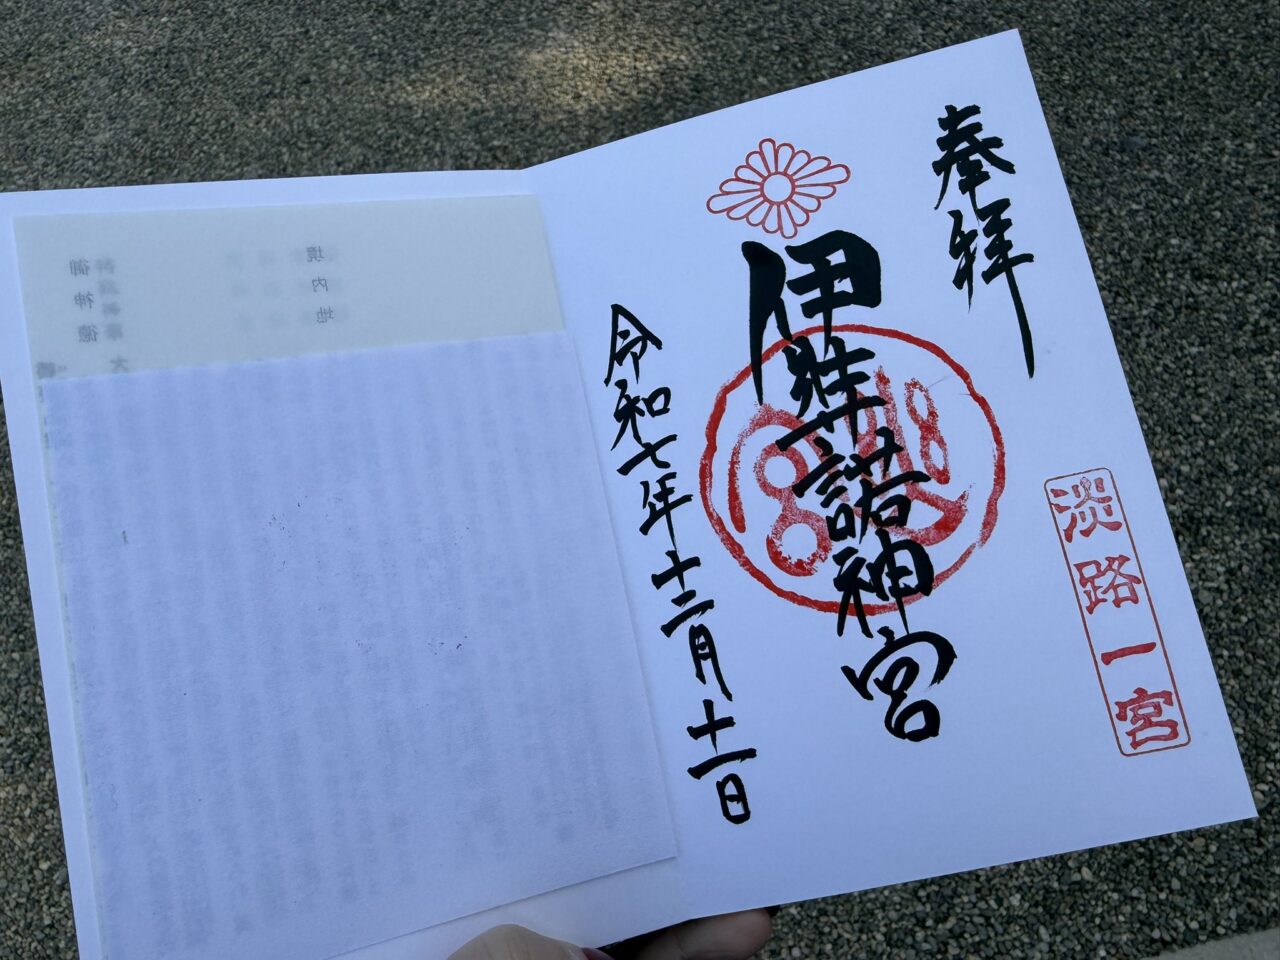 奉拝
淡路一宮
伊弉諾神宮
令和七年十二月十一日
境内地
御神徳